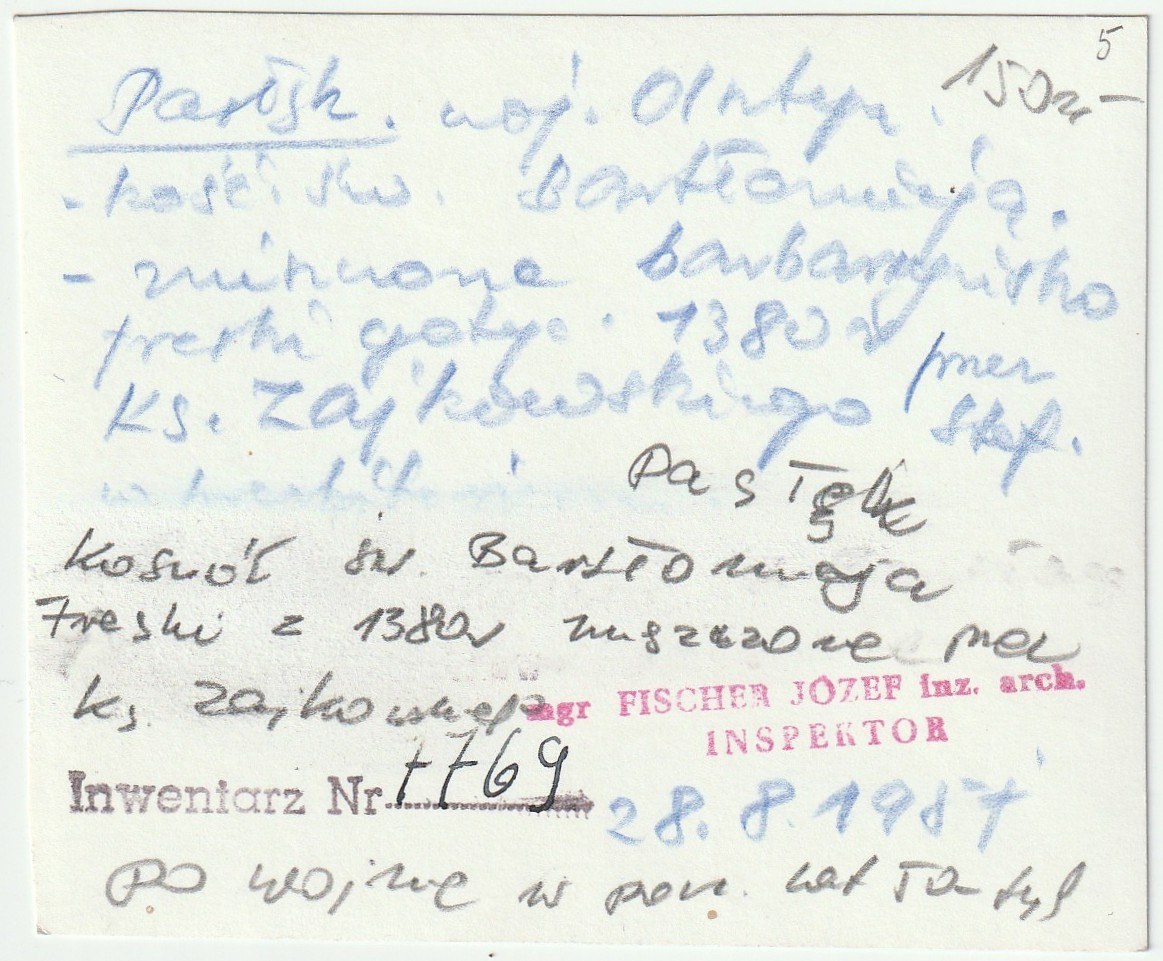 5
150m –
Pasłęk. woj. Olsztyn.
- kość. św. Bartłomieja.
- zniszczone barbarzyńsko
freski gotyc. 1380 r przez
Ks. Zajkowskiego Stef.
Pasłęk
Kościół św. Bartłomieja
Freski z 1380r zniszczone przez
Ks. Zajkowskiego
mgr FISCHER JÓZEF inż. arch.
INSPEKTOR
Inwentarz Nr 7769
28.8.1957
po wojnie w pow.